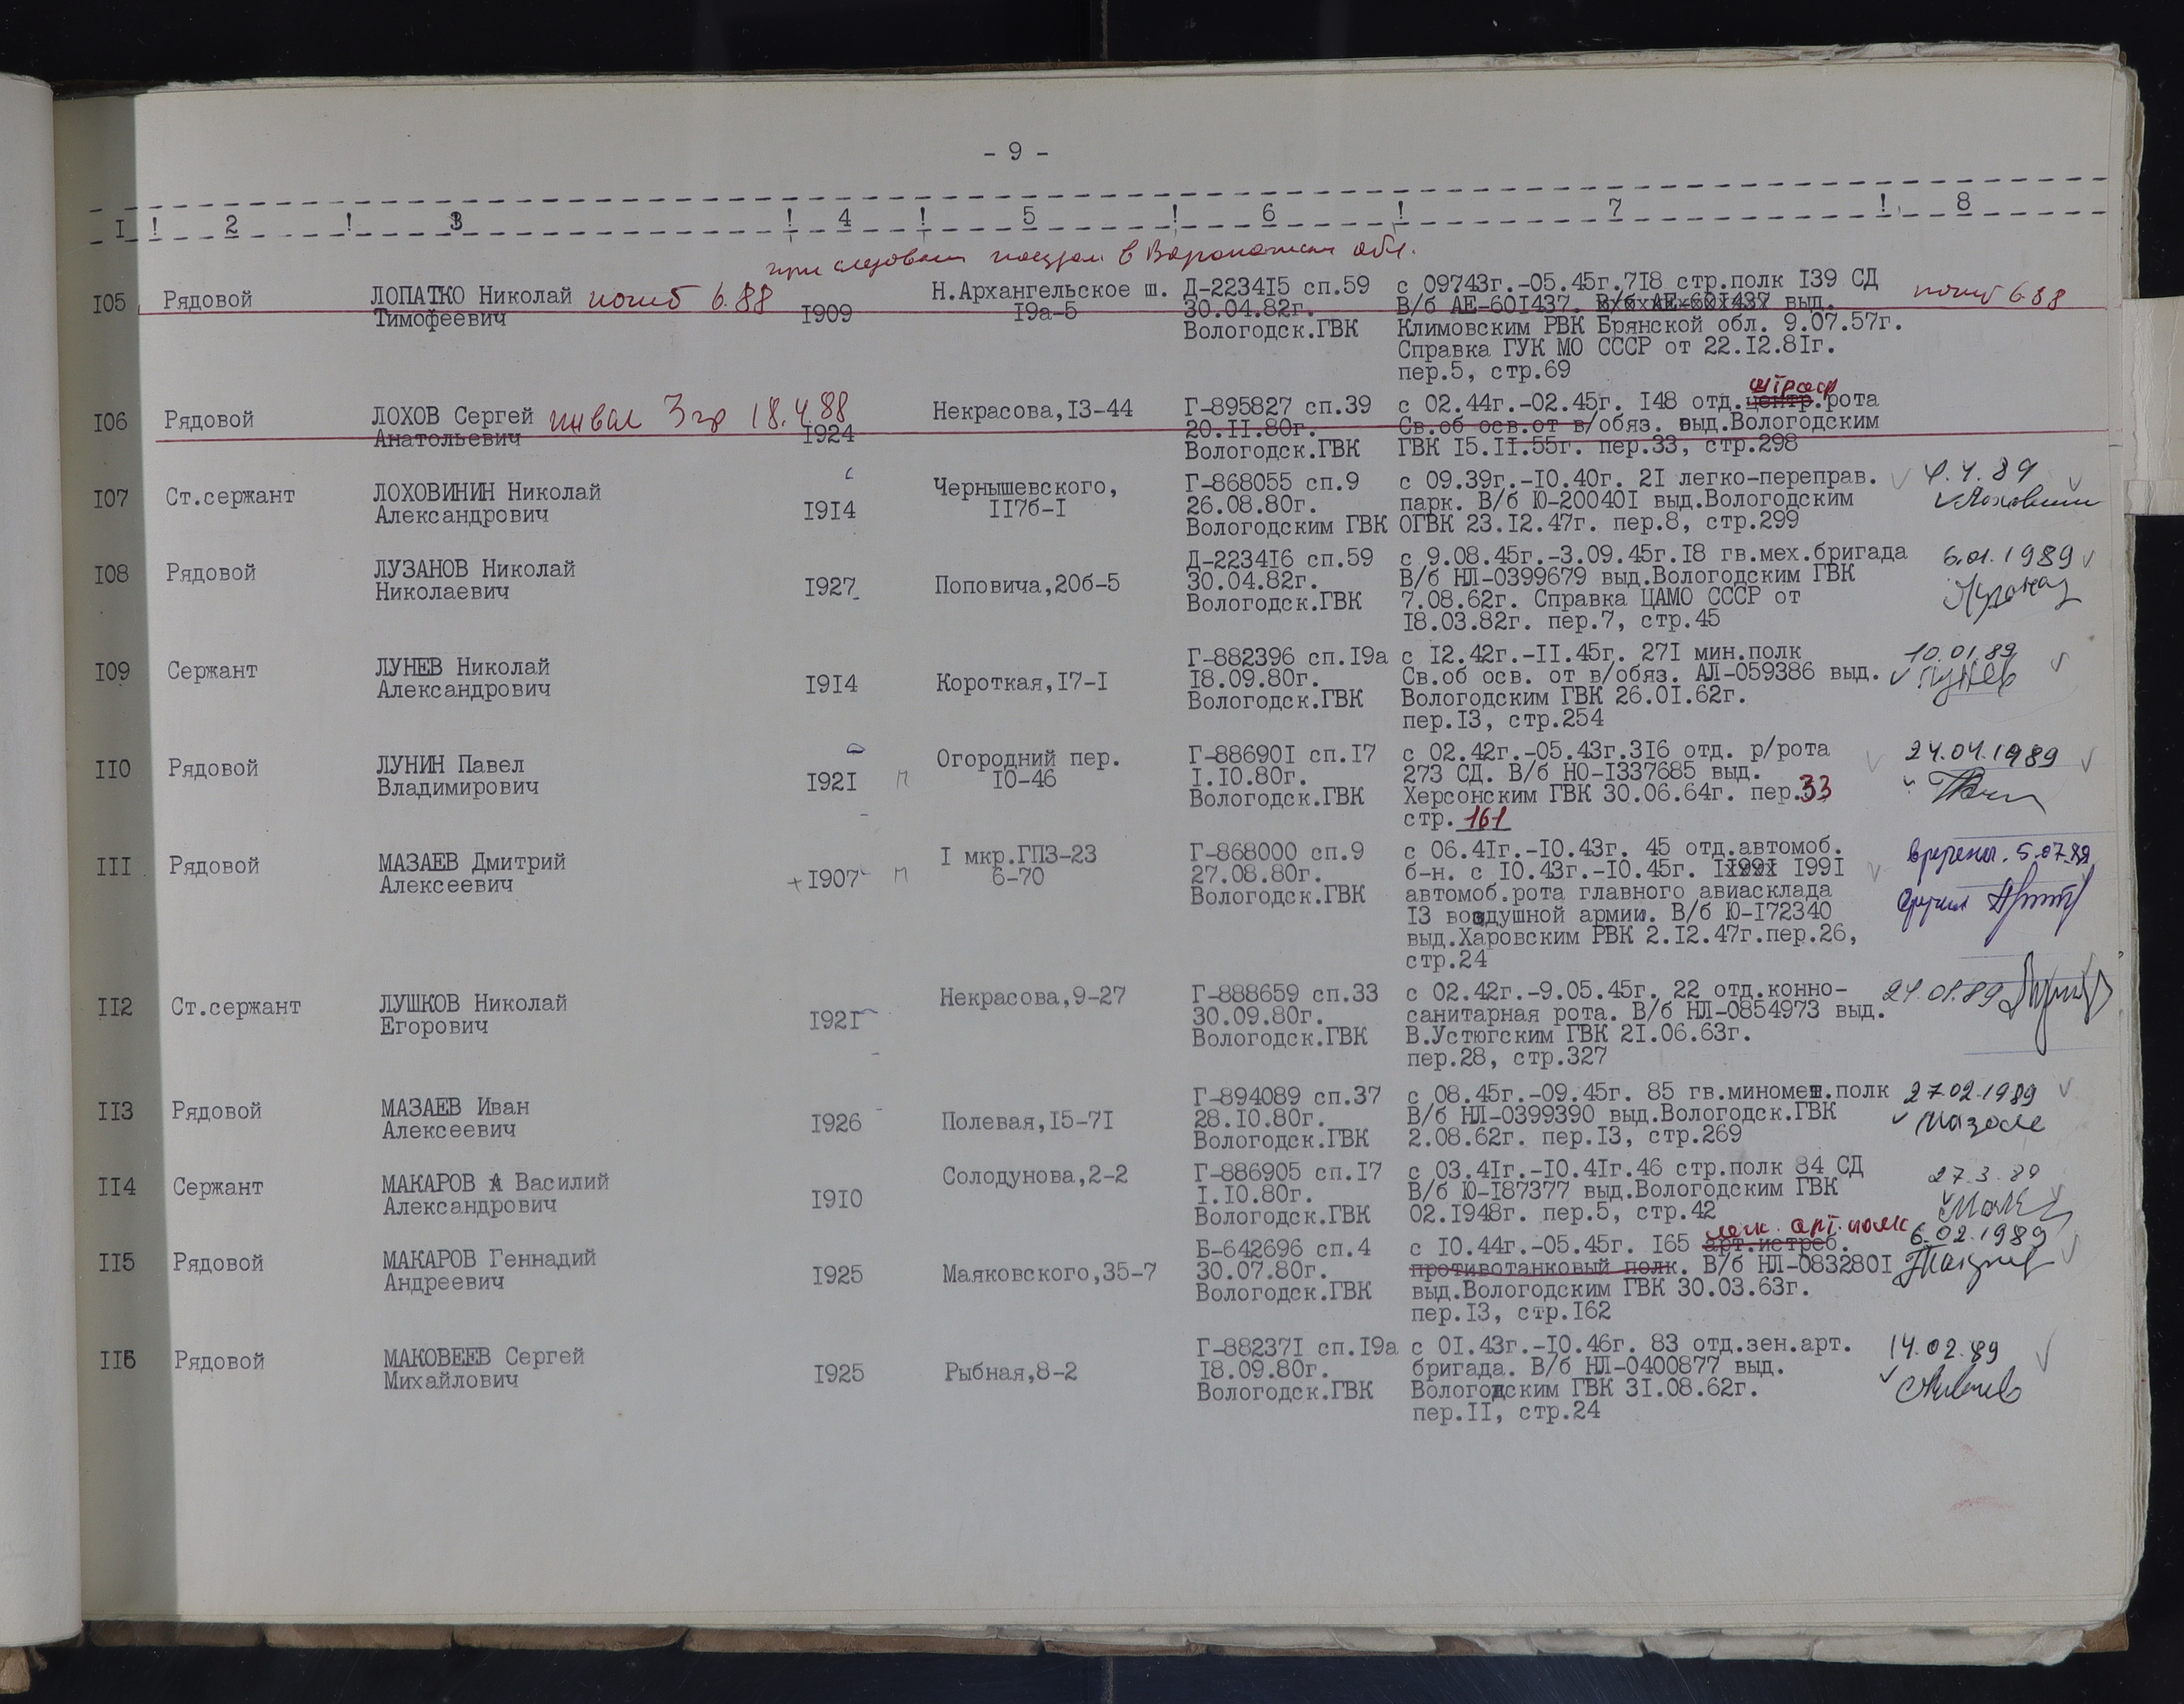 - 9 -
I ! 2 ! 3 ! 4 ! 5 ! 6 ! 7 ! 8
при следован поездом в Воронежскую обл.
I05 Рядовой ЛОПАТКО Николай погиб 6.88 Н.Архангельское ш. Д-2234I5 сп.59 с 09743г.-05.45г.7I8 стр.полк I39 СД погиб 6.88
Тимофеевич I909 I9а-5 30.04.82г. В/б АЕ-60I437. В/б АЕ-60I437 выд.
Вологодск.ГВК Климовским РВК Брянской обл. 9.07.57г.
Справка ГУК МО СССР от 22.I2.8Iг.
пер.5, стр.69
штраф
I06 Рядовой ЛОХОВ Сергей инвал 3 гр 18.4.88 Некрасова,I3-44 Г-895827 сп.39 с 02.44г.-02.45г. I48 отд.центр.рота
Анатольевич I924 20.II.80г. Св.об осв.от в/обяз. выд.Вологодским
Вологодск.ГВК ГВК I5.II.55г. пер.33, стр.298
I07 Ст.сержант ЛОХОВИНИН Николай Чернышевского, Г-868055 сп.9 с 09.39г.-I0.40г. 2I легко-переправ. 4.4.89
Александрович I9I4 II7б-I 26.08.80г. парк. В/б Ю-20040I выд.Вологодским
Вологодским ГВК ОГВК 23.I2.47г. пер.8, стр.299
I08 Рядовой ЛУЗАНОВ Николай Д-2234I6 сп.59 с 9.08.45г.-3.09.45г.I8 гв.мех.бригада 6.01.1989
Николаевич I927 Поповича,20б-5 30.04.82г. В/б НЛ-0399679 выд.Вологодским ГВК
Вологодск.ГВК 7.08.62г. Справка ЦАМО СССР от
I8.03.82г. пер.7, стр.45
I09 Сержант ЛУНЕВ Николай Г-882396 сп.I9а с I2.42г.-II.45г. 27I мин.полк 10.01.89
Александрович I9I4 Короткая,I7-I I8.09.80г. Св.об осв. от в/обяз. АЛ-059386 выд. Лунев
Вологодск.ГВК Вологодским ГВК 26.0I.62г.
пер.I3, стр.254
II0 Рядовой ЛУНИН Павел Огородний пер. Г-88690I сп.I7 с 02.42г.-05.43г.3I6 отд. р/рота 24.04.1989
Владимирович I92I п I0-46 I.I0.80г. 273 СД. В/б НО-I337685 выд.
Вологодск.ГВК Херсонским ГВК 30.06.64г. пер.33
стр. 161
III Рядовой МАЗАЕВ Дмитрий I мкр.ГПЗ-23 Г-868000 сп.9 с 06.4Iг.-I0.43г. 45 отд.автомоб. вручена. 5.07.89
Алексеевич +I907 п 6-70 27.08.80г. б-н. с I0.43г.-I0.45г. I99I
Вологодск.ГВК автомоб.рота главного авиасклада вручил
I3 воздушной армии. В/б Ю-I72340
выд.Харовским РВК 2.I2.47г.пер.26,
стр.24
II2 Ст.сержант ЛУШКОВ Николай Некрасова,9-27 Г-888659 сп.33 с 02.42г.-9.05.45г. 22 отд.конно- 24.01.89
Егорович I92I 30.09.80г. санитарная рота. В/б НЛ-0854973 выд.
Вологодск.ГВК В.Устюгским ГВК 2I.06.63г.
пер.28, стр.327
II3 Рядовой МАЗАЕВ Иван Г-894089 сп.37 с 08.45г.-09.45г. 85 гв.миномет.полк 27.02.1989
Алексеевич I926 Полевая,I5-7I 28.I0.80г. В/б НЛ-0399390 выд.Вологодск.ГВК
Вологодск.ГВК 2.08.62г. пер.I3, стр.269
II4 Сержант МАКАРОВ А Василий Солодунова,2-2 Г-886905 сп.I7 с 03.4Iг.-I0.4Iг.46 стр.полк 84 СД 27.3.89
Александрович I9I0 I.I0.80г. В/б Ю-I87377 выд.Вологодским ГВК
Вологодск.ГВК 02.I948г. пер.5, стр.42
легк. арт. полк
II5 Рядовой МАКАРОВ Геннадий Б-642696 сп.4 с I0.44г.-05.45г. I65 арт.истреб. 6.02.1989
Андреевич I925 Маяковского,35-7 30.07.80г. противотанковый полк. В/б НЛ-083280I
Вологодск.ГВК выд.Вологодским ГВК 30.03.63г.
пер.I3, стр.I62
II6 Рядовой МАКОВЕЕВ Сергей Г-88237I сп.I9а с 0I.43г.-I0.46г. 83 отд.зен.арт. 14.02.89
Михайлович I925 Рыбная,8-2 I8.09.80г. бригада. В/б НЛ-0400877 выд.
Вологодск.ГВК Вологодским ГВК 3I.08.62г.
пер.II, стр.24